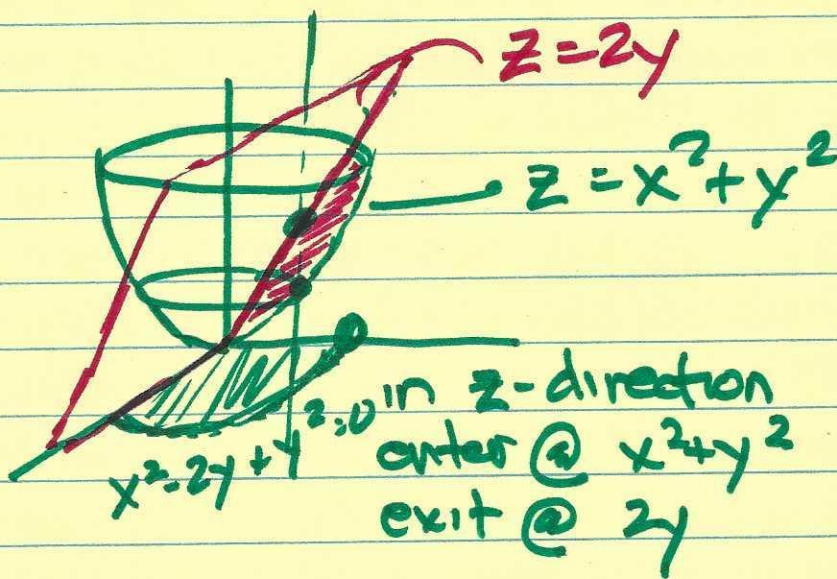 z = 2y
z = x² + y²
x² - 2y + y² = 0
in z-direction
enter @ x² + y²
exit @ 2y